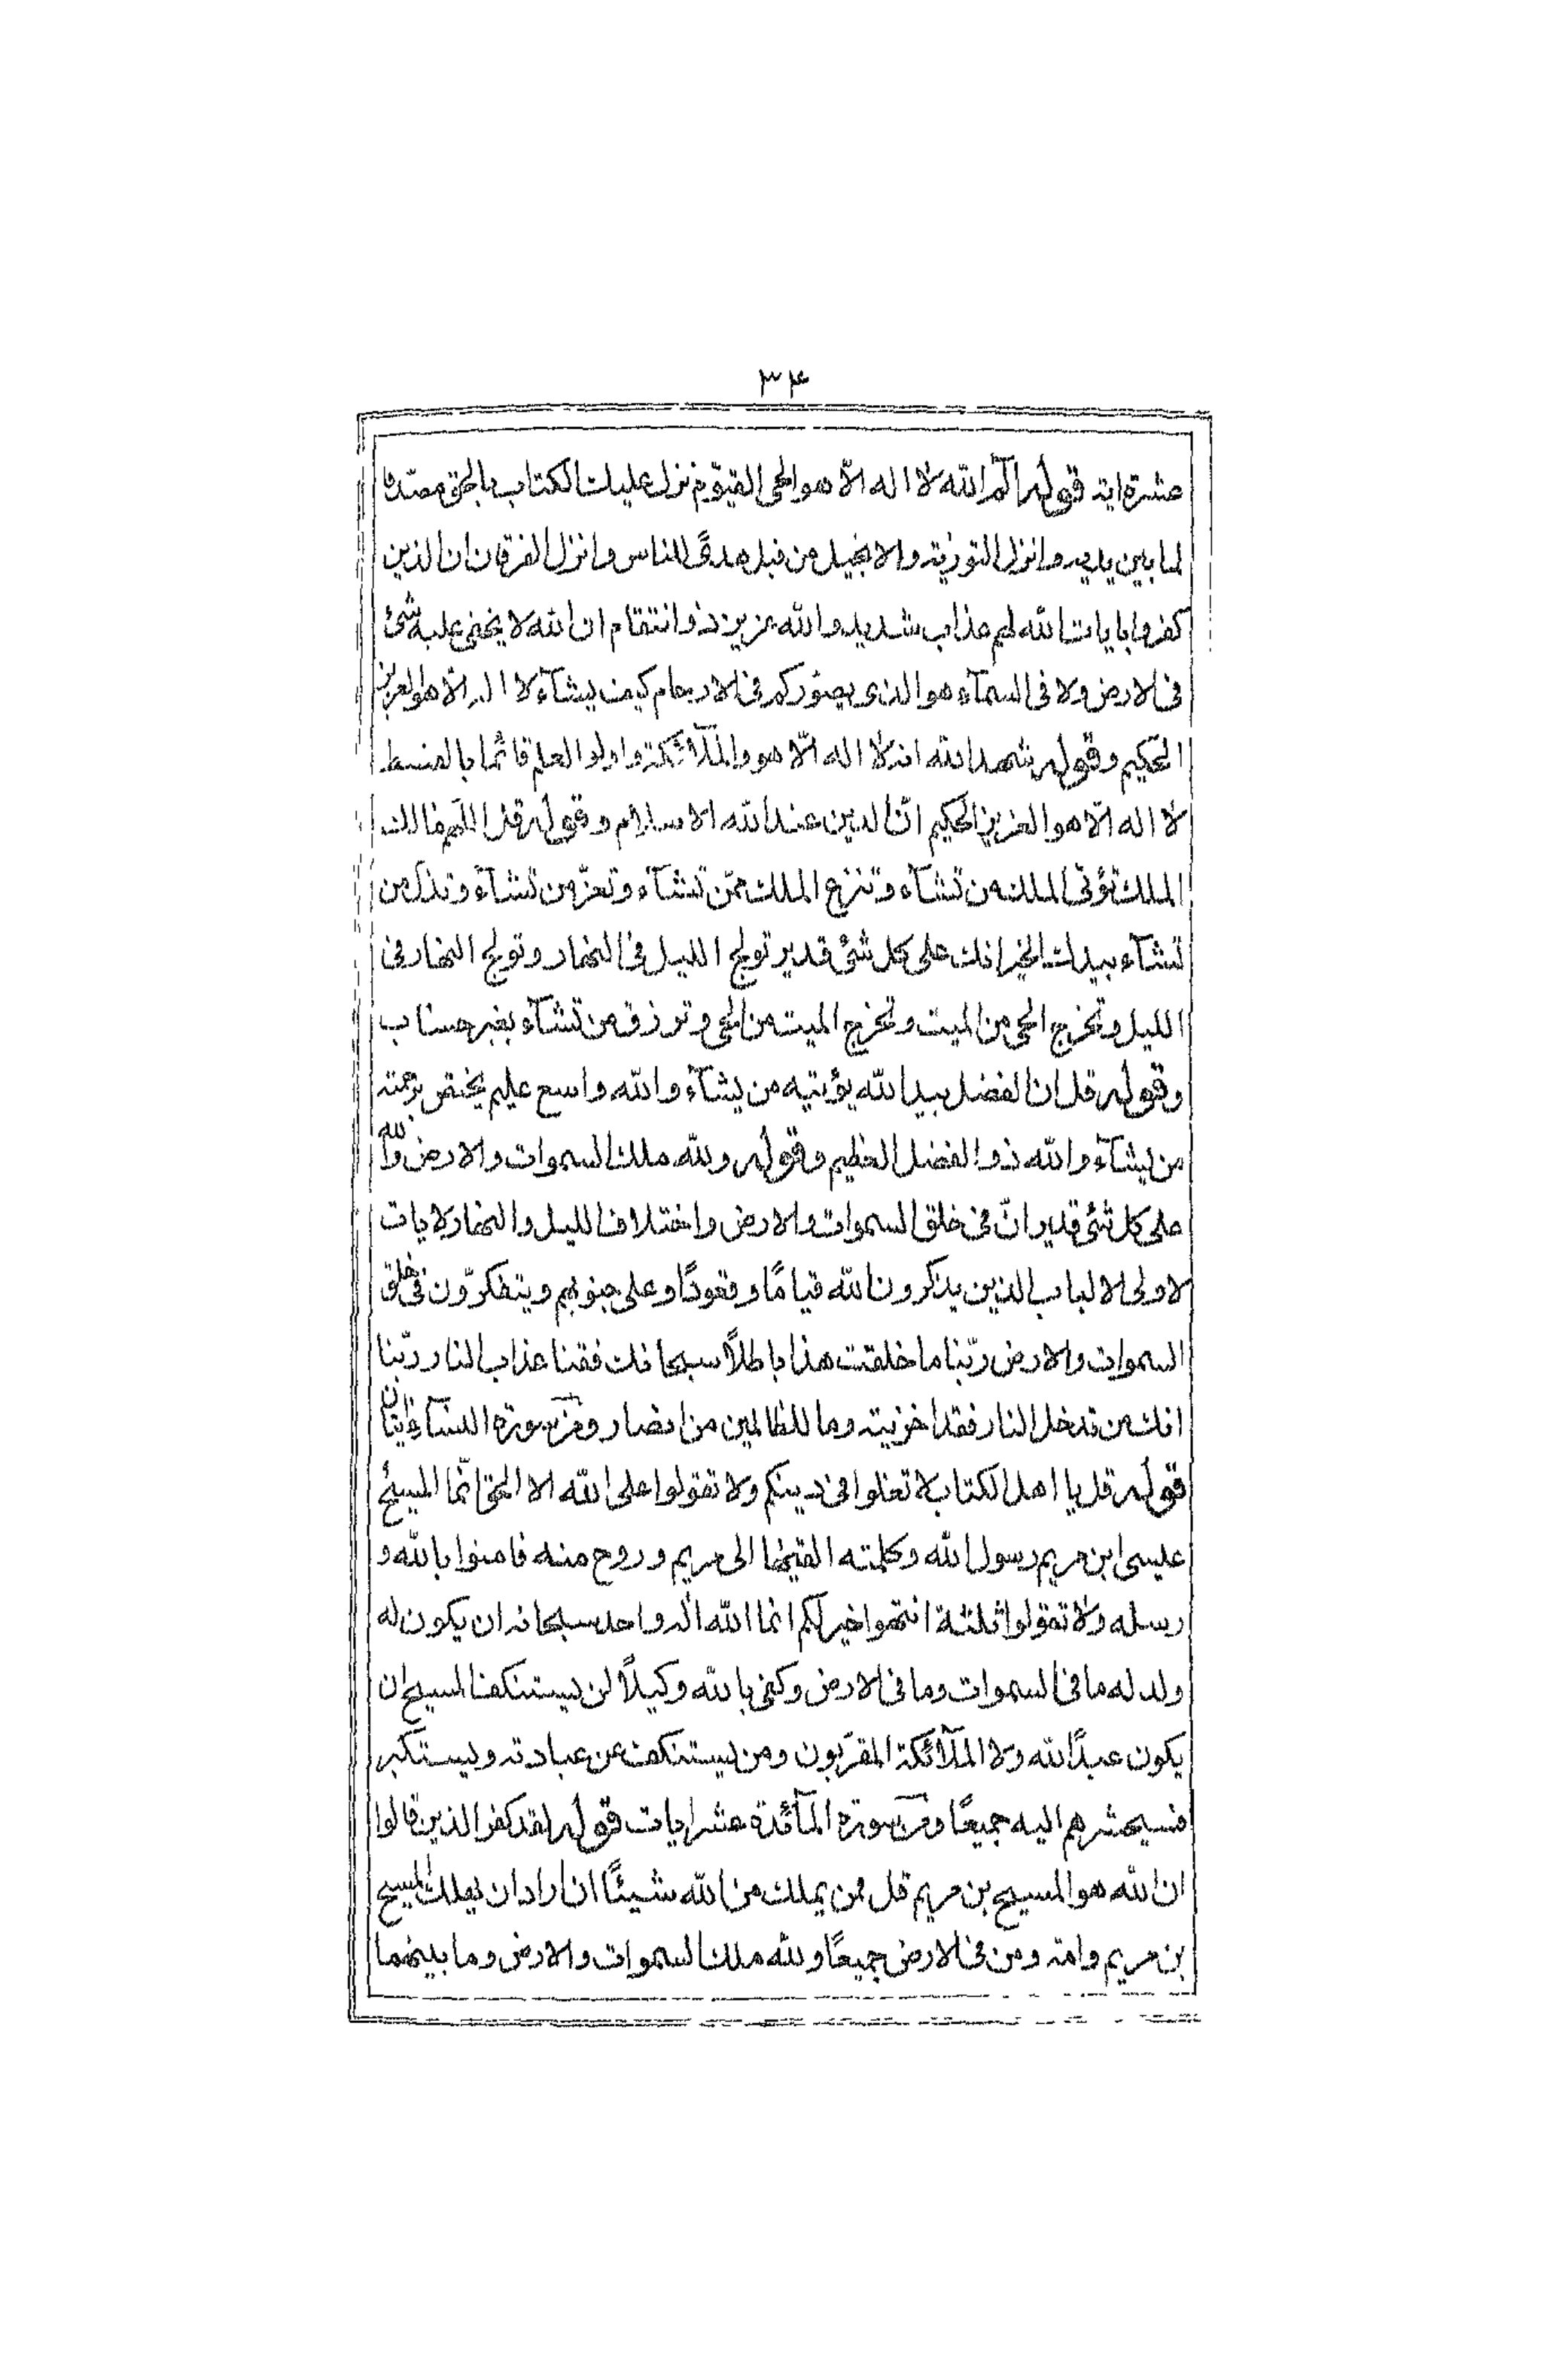 ۳۴
عشرة اية قوله الٓم الله لا اله الّا هو الحى القيّوم نزل عليك الكتاب بالحق مصدقا
لما بين يديه وانزل التورية والانجيل من قبل هدىً للناس وانزل الفرقان ان الذين
كفروا بايات الله لهم عذاب شديد والله عزيز ذو انتقام ان الله لا يخفى عليه شئ
فى الارض ولا فى السمآء هو الذى يصوّركم فى الارحام كيف يشآء لا اله الّا هو العزيز
الحكيم وقوله شهد الله انه لا اله الّا هو والملآئكة واولوا العلم قائما بالقسط
لا اله الّا هو العزيز الحكيم انّ الدين عند الله الاسلام وقوله قل اللهم مالك
الملك تؤتى الملك من تشآء وتنزع الملك ممّن تشآء وتعزّ من تشآء وتذل من
تشآء بيدك الخير انك على كل شئ قدير تولج الليل فى النهار وتولج النهار فى
الليل وتخرج الحى من الميت وتخرج الميت من الحى وترزق من تشآء بغير حساب
وقوله قل ان الفضل بيد الله يؤتيه من يشآء والله واسع عليم يختص برحمته
من يشآء والله ذو الفضل العظيم وقوله ولله ملك السموات والارض والله
على كل شئ قدير انّ فى خلق السموات والارض واختلاف الليل والنهار لايات
لاولى الالباب الذين يذكرون الله قيامًا وقعودًا وعلى جنوبهم ويتفكرّون فى خلق
السموات والارض ربّنا ما خلقت هذا باطلًا سبحانك فقنا عذاب النار ربّنا
انك من تدخل النار فقد اخزيته وما للظالمين من انصار ومن سورة النسآء ايتان
قوله قل يا اهل الكتاب لا تغلوا فى دينكم ولا تقولوا على الله الا الحق انّما المسيح
عليسى ابن مريم رسول الله وكلمته القيها الى مريم وروح منه فامنوا بالله و
رسله ولا تقولوا ثلثة انتهوا خيرا لكم انما الله اله واحد سبحانه ان يكون له
ولد له ما فى السموات وما فى الارض وكفى بالله وكيلًا لن يستنكف المسيح ان
يكون عبدًا لله ولا الملآئكة المقرّبون ومن يستنكف عن عبادته ويستكبر
فسيحشرهم اليه جميعًا ومن سورة المآئدة عشر ايات قوله لقد كفر الذين قالوا
ان الله هو المسيح بن مريم قل فمن يملك من الله شيئًا ان اراد ان يهلك المسيح
بن مريم وامه ومن فى الارض جميعًا ولله ملك السموات والارض وما بينهما